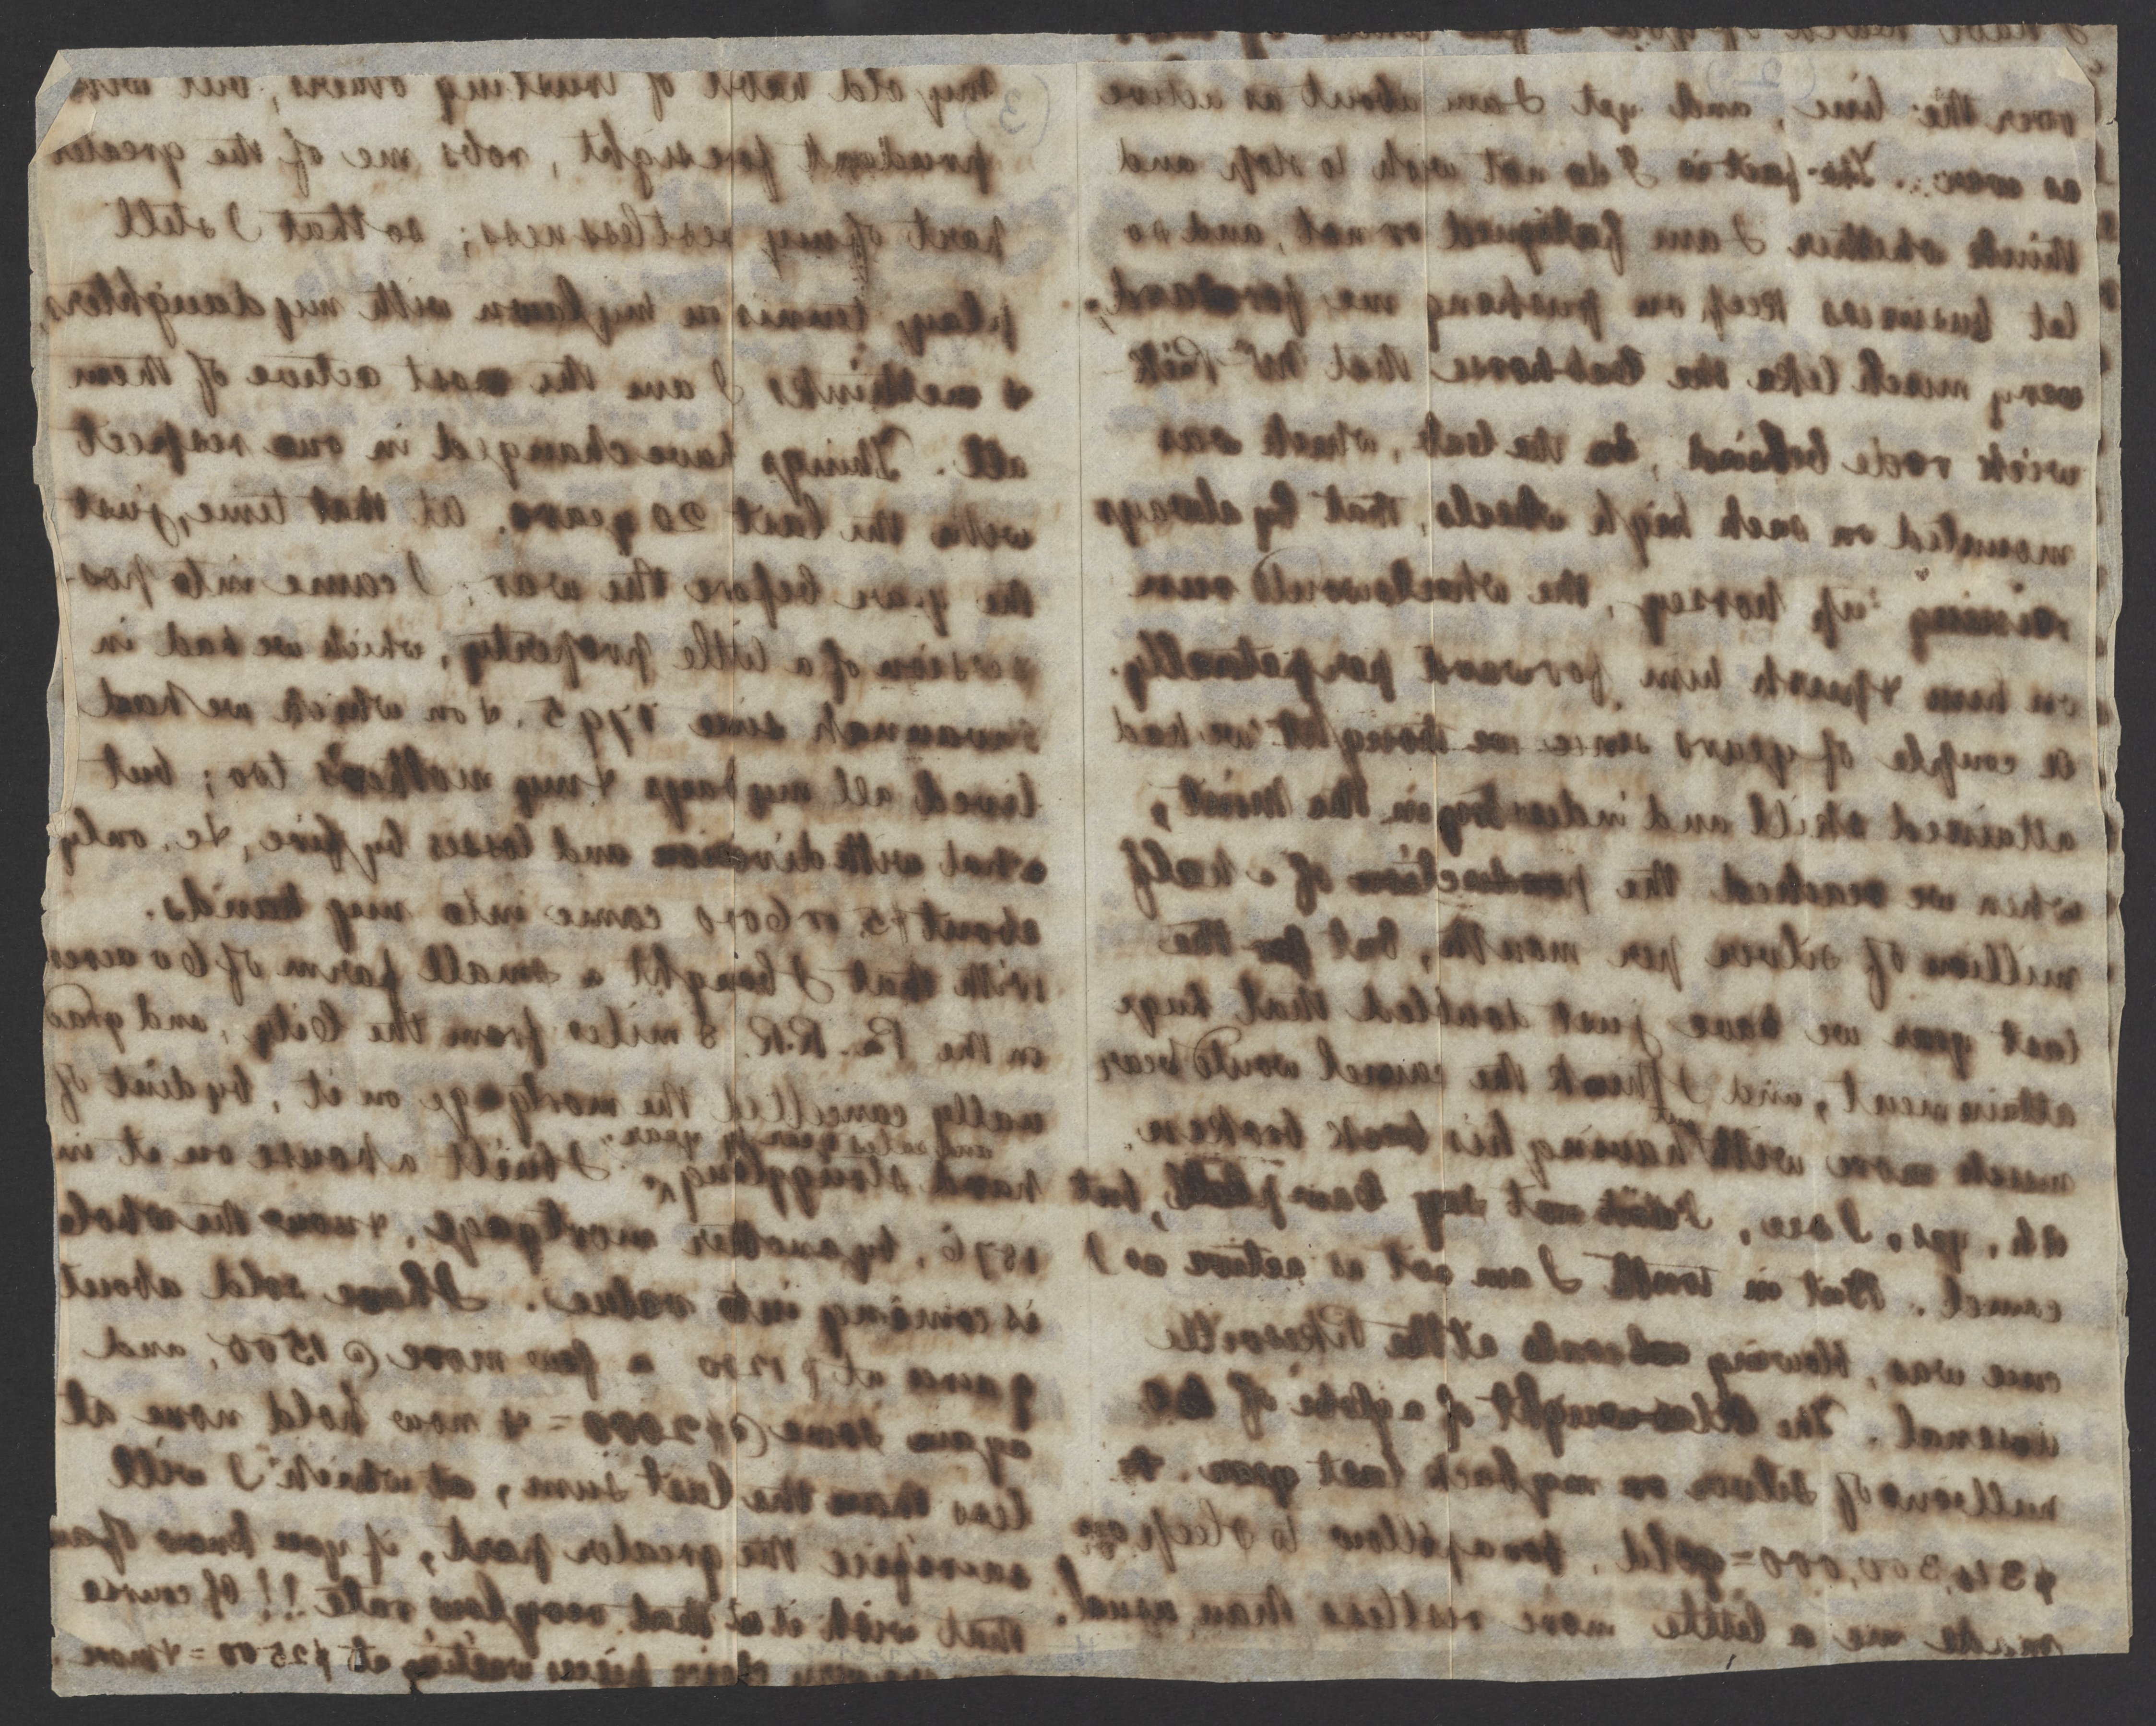 I have never
(2)
over the line, and yet I am about as active
as ever. The fact is I do not wish to stop and
think whether I am fatigued or not, and so
let business keep on pushing me forward,
very much like the cab-horse that Mr Pick
wick rode behind, in the cab, which was
mounted on such high wheels, that by always
reining up horsey, the wheels would run
on him & push him forward perpetually.
A couple of years since we thought we had
attained skill and industry in the Mint,
when we reached the production of a half
million of silver per month, but for the
last year we have just doubled that huge
attainment, and I think the camel would bear
much more without having his back broken.
Ah, yes, I see, I am not my own, but
camel. But in truth I am not as active as I
once was, blowing at the Pikesville
arsenal. The weight of a of 20
millions of silver on my back last year &
$34,300,000 = gold, for a pillow to sleep on,
made me a little more restless than usual.
(3)
My old habit of trusting others, our wise
prudent foresight, robs me of the greater
part of my restlessness; so that I still
play tennis on my lawn with my daughters,
& methinks I am the most active of them
all. Things have changed in one respect
with the last 20 years. At that time, just
the year before the war, I came into pos-
session of a little property, which we had in
Savannah since 1795, & on which we had
lived all my days & my mother's too; but
what with division and losses by fire, &c. only
about $5 or 6000 came into my hands.
With that I bought a small farm of 60 acres
on the Pa. R.R. 8 miles from the City, and grad
ually cancelled the mortgage on it, by dint of
hard struggling, and sales year by year, I built a house on it in
1876, by another mortgage, & now the whole
is coming into value. I have sold about
9 acres at $1200 a few more @ 1500, and
again some @ $2000 = & now hold none at
less than the last sum, at which I will
sacrifice the greater part, if you know of any
that wish it at that very low rate!!! Of course
choice pieces at $2500 = & more